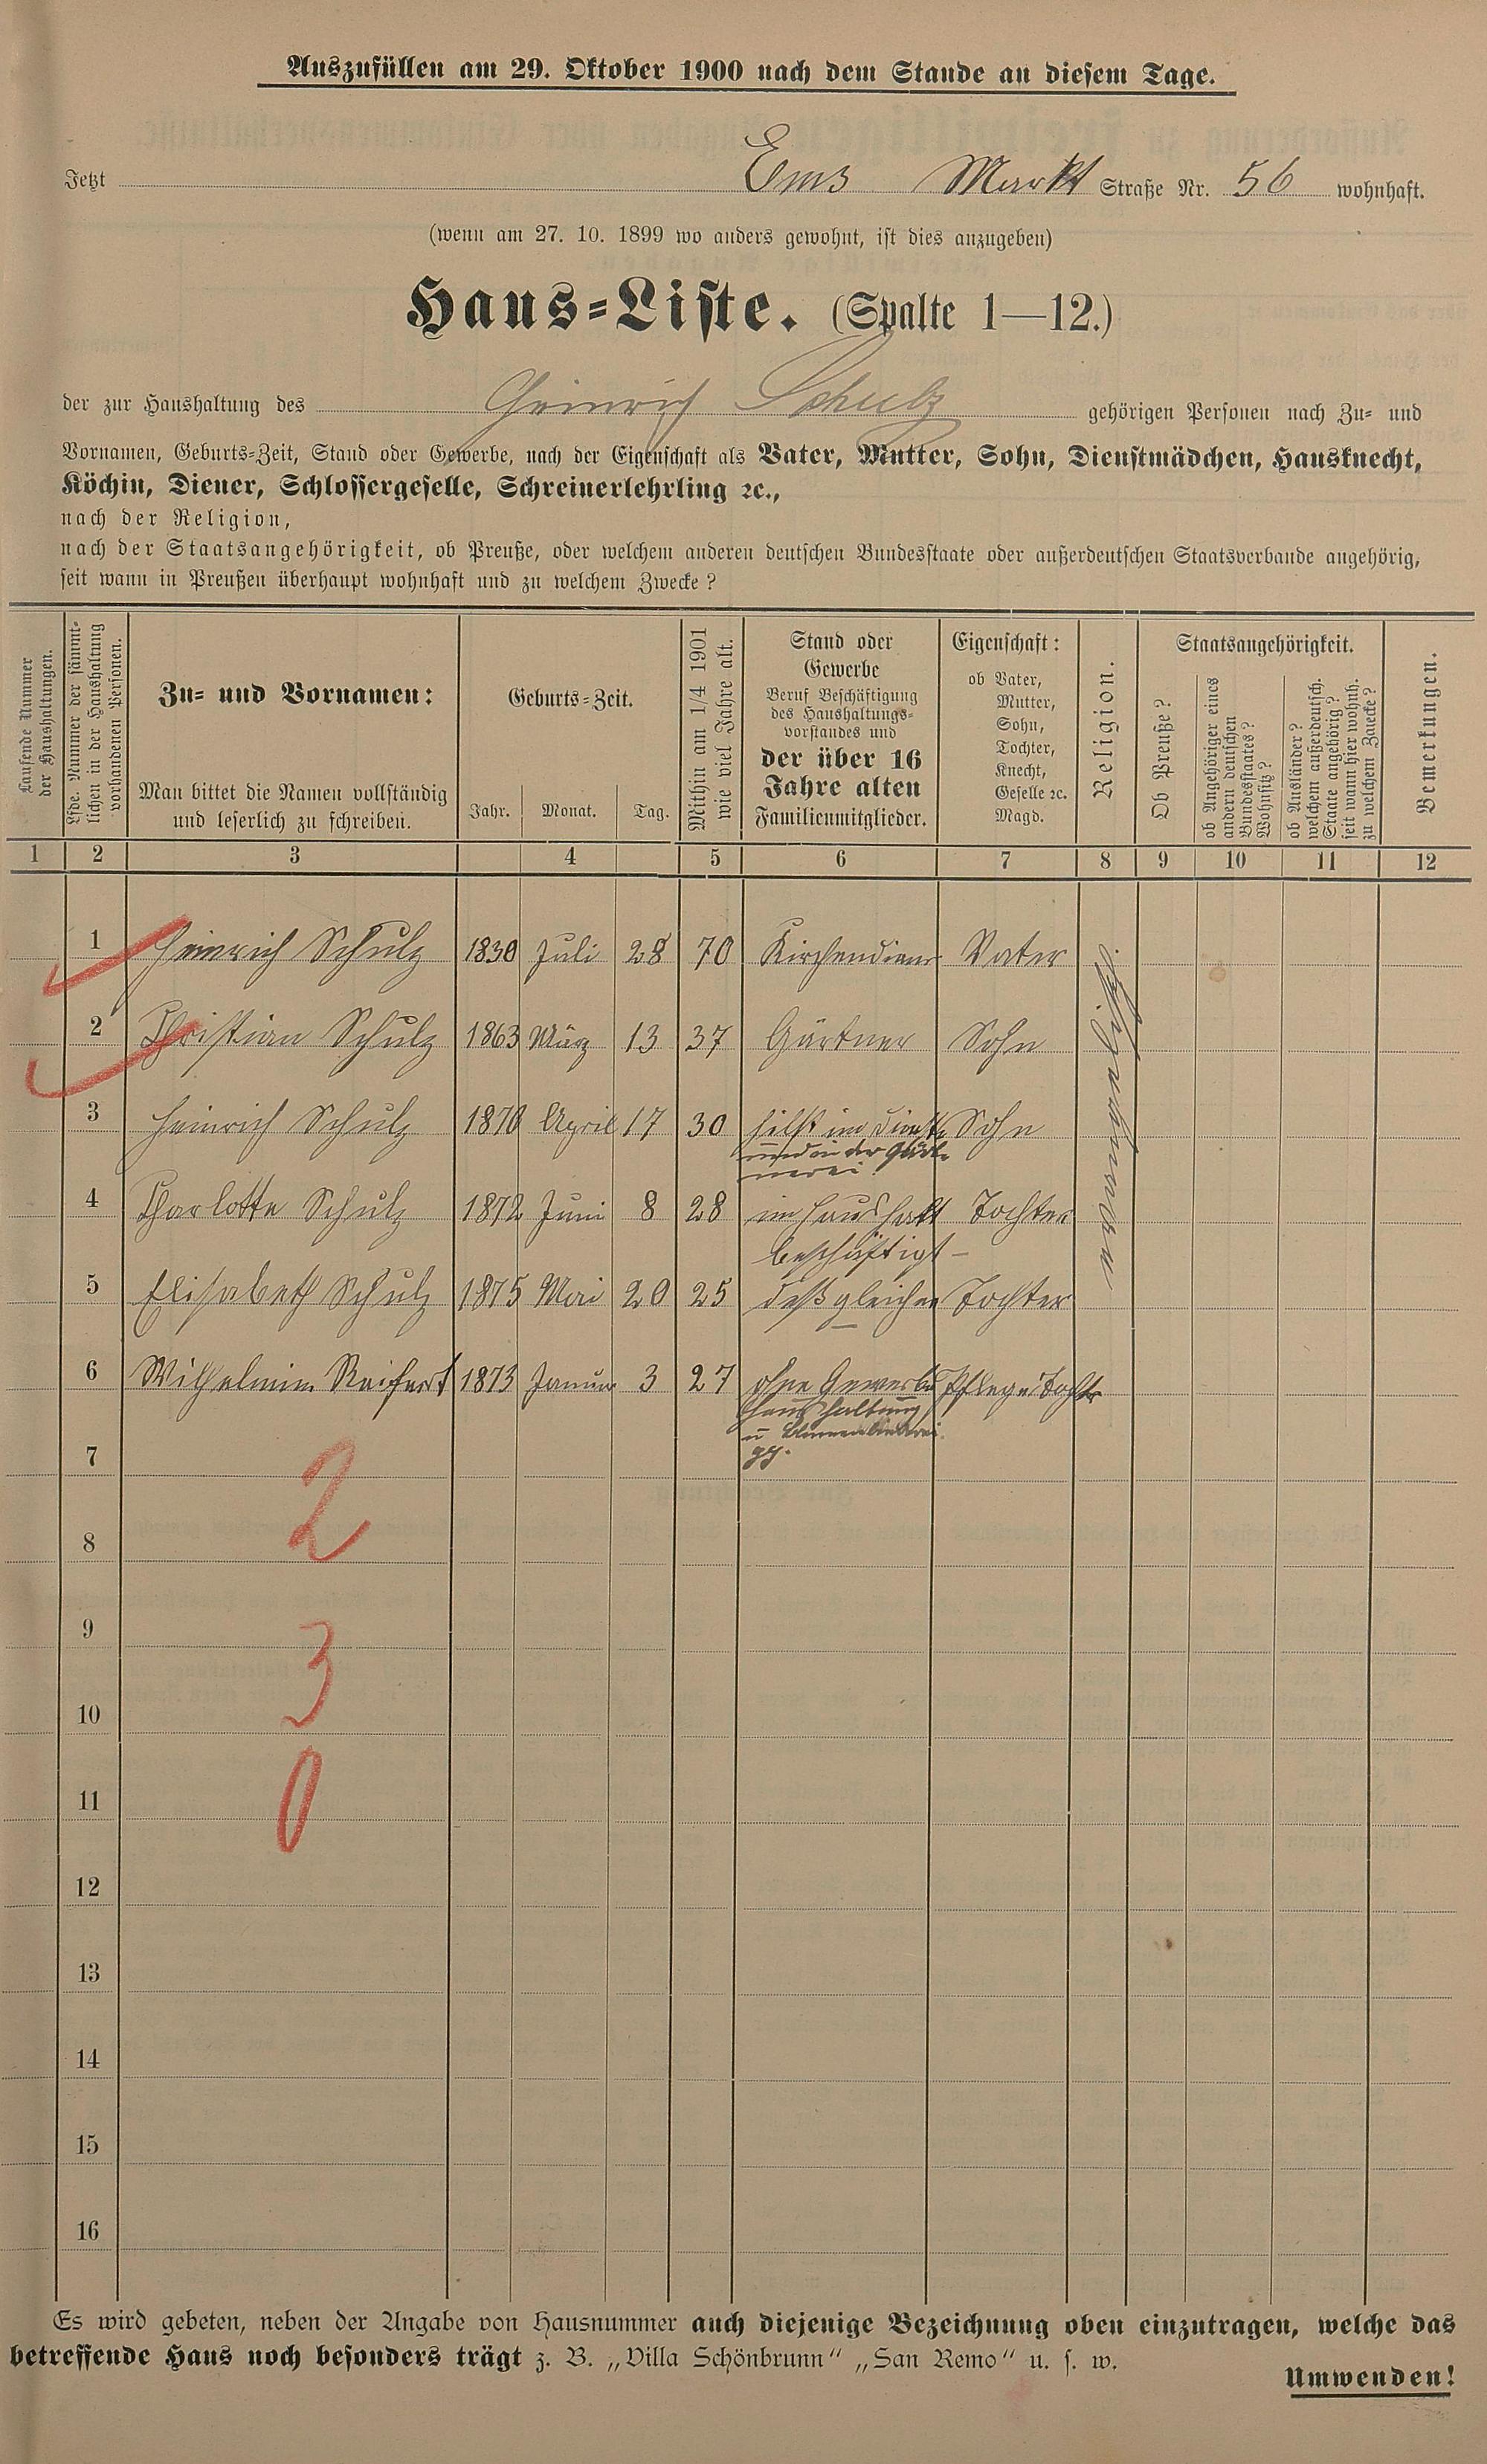 Auszufüllen am 29. Oktober 1900 nach dem Stande an diesem Tage.
Jetzt Ems Markt Straße Nr. 56 wohnhaft.
(wenn am 27. 10. 1899 wo anders gewohnt, ist dies anzugeben)
Haus-Liste. (Spalte 1—12.)
der zur Haushaltung des Heinrich Schulz gehörigen Personen nach Zu- und
Vornamen, Geburts-Zeit, Stand oder Gewerbe, nach der Eigenschaft als Vater, Mutter, Sohn, Dienstmädchen, Hausknecht,
Köchin, Diener, Schlossergeselle, Schreinerlehrling ꝛc.,
nach der Religion,
nach der Staatsangehörigkeit, ob Preuße, oder welchem anderen deutschen Bundesstaate oder außerdeutschen Staatsverbande angehörig,
seit wann in Preußen überhaupt wohnhaft und zu welchem Zwecke?
Laufende Nummer
der Haushaltungen.
Lfde. Nummer der sämmt-
lichen in der Haushaltung
vorhandenen Personen.
Zu- und Vornamen:
Man bittet die Namen vollständig
und leserlich zu schreiben.
Geburts-Zeit.
Jahr. Monat. Tag.
Mithin am 1/4 1901
wie viel Jahre alt.
Stand oder
Gewerbe
Beruf Beschäftigung
des Haushaltungs-
vorstandes und
der über 16
Jahre alten
Familienmitglieder.
Eigenschaft:
ob Vater,
Mutter,
Sohn,
Tochter,
Knecht,
Geselle ꝛc.
Magd.
Religion.
Staatsangehörigkeit.
Ob Preuße?
ob Angehöriger eines
andern deutschen
Bundesstaates?
Wohnsitz?
ob Ausländer?
welchem außerdeutsch.
Staate angehörig?
seit wann hier wohnh.
zu welchem Zwecke?
Bemerkungen.
1 2 3 4 5 6 7 8 9 10 11 12
1 Heinrich Schulz 1830 Juli 28 70 Kirchendiener Vater
2 Christian Schulz 1863 März 13 37 Gärtner Sohn
3 Heinrich Schulz 1870 April 17 30 hilft im Dienste Sohn
und in der Gärt-
nerei
4 Charlotte Schulz 1872 Juni 8 28 im Haushalt Tochter
beschäftigt —
5 Elisabeth Schulz 1875 Mai 20 25 deßgleichen Tochter
6 Wilhelmine Reifert 1873 Januar 3 27 ohne Gewerbe Pflegetochter
Haushaltung
u Blumenbinderei
7
2
8
9
3
10
11
0
12
13
14
15
16
Es wird gebeten, neben der Angabe von Hausnummer auch diejenige Bezeichnung oben einzutragen, welche das
betreffende Haus noch besonders trägt z. B. „Villa Schönbrunn“ „San Remo“ u. s. w.
Umwenden!